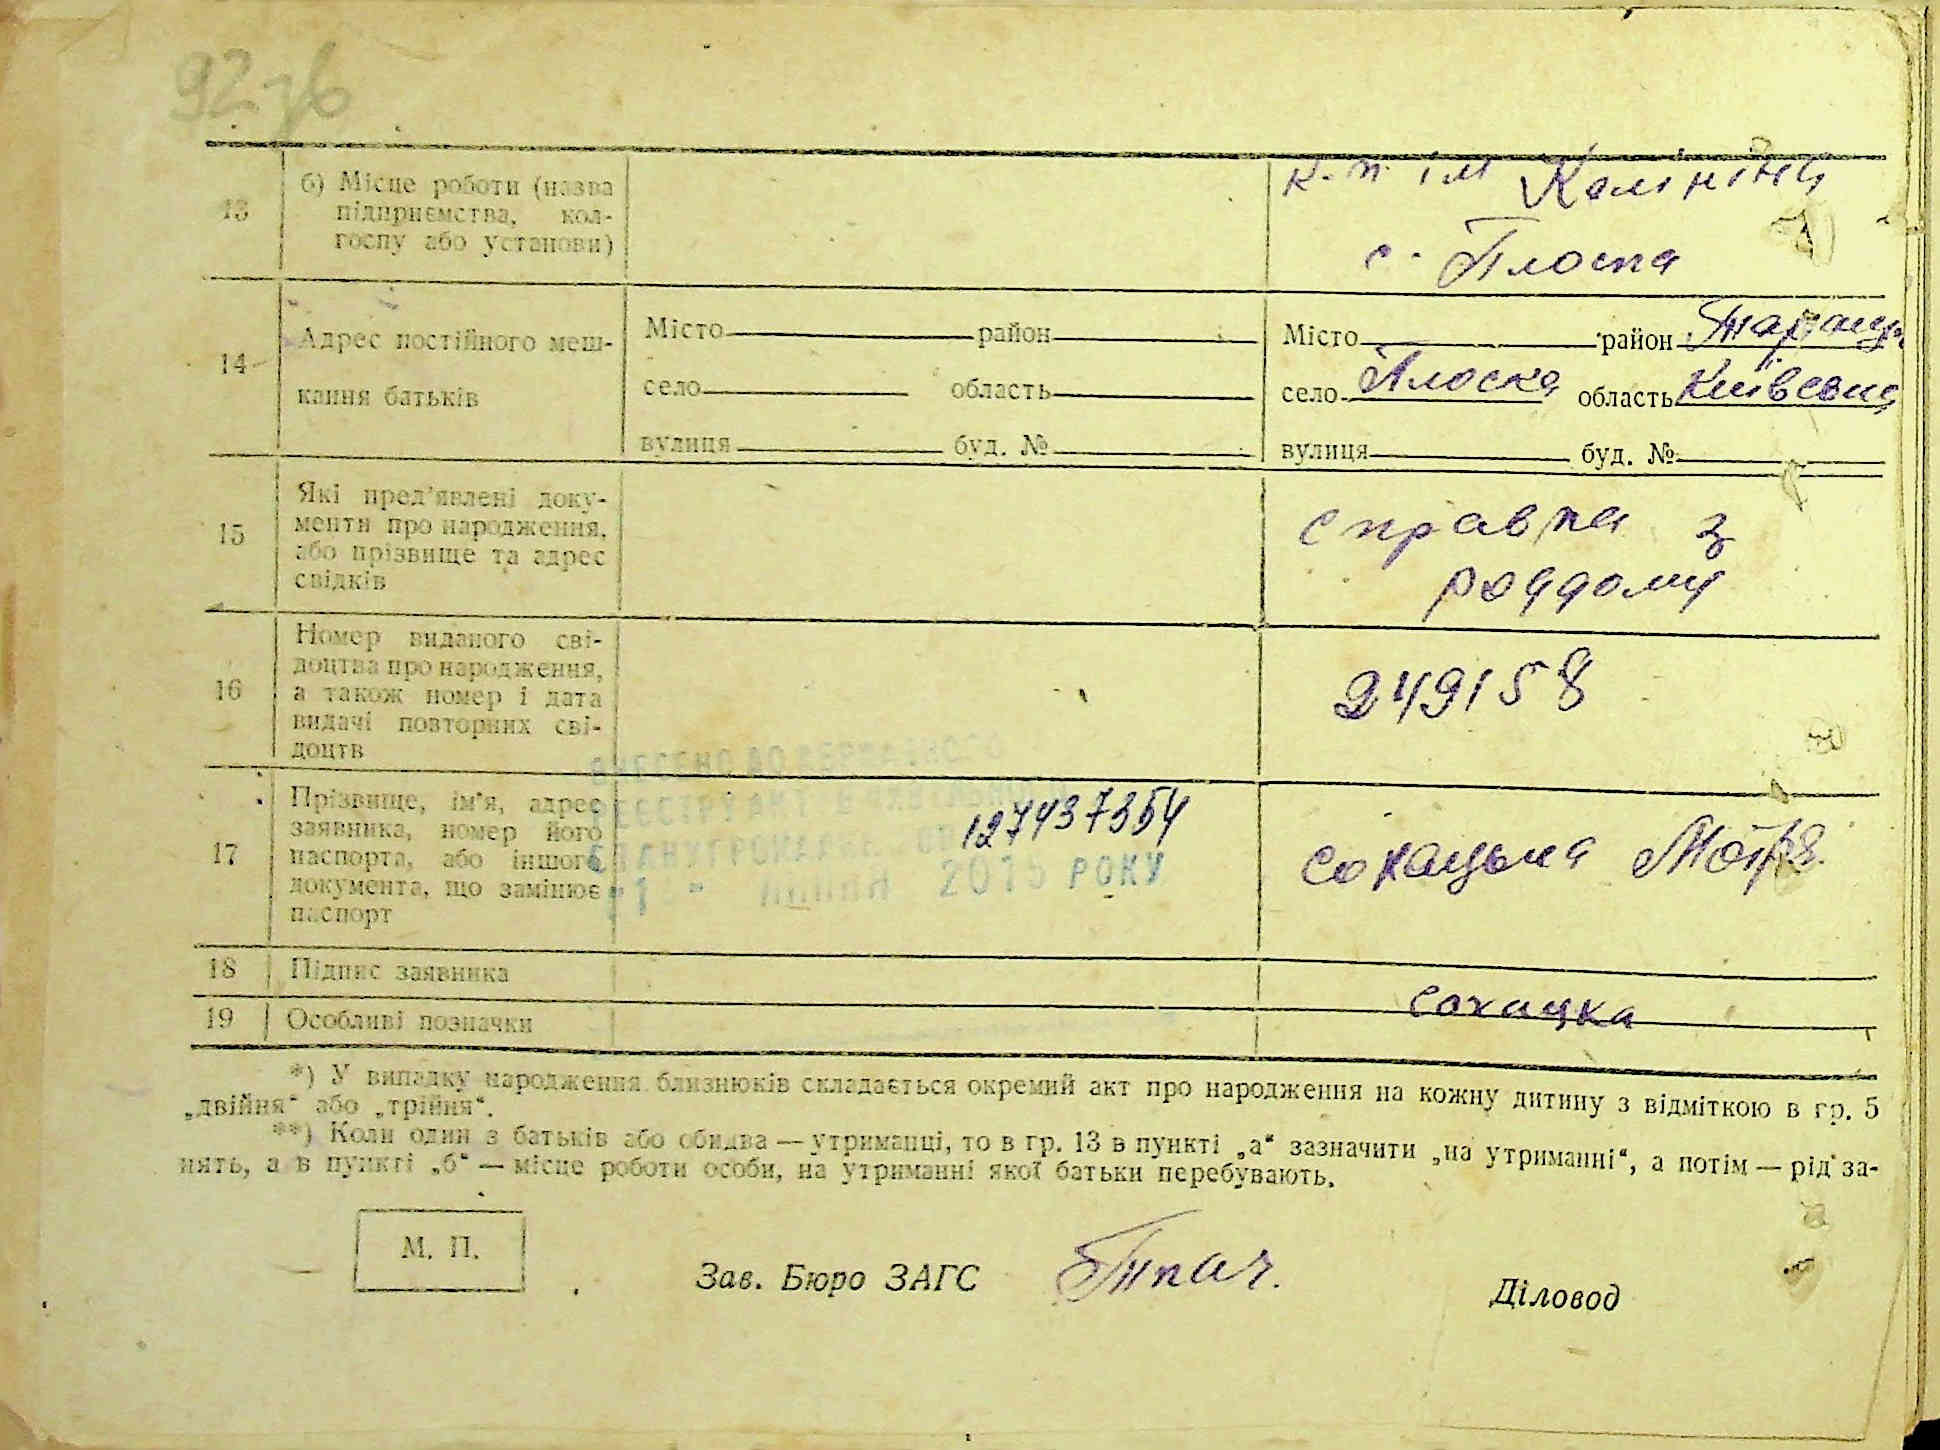 92зв
13
б) Місце роботи (назва
підприємства, кол-
госпу або установи)
к-п. ім Калініна
с. Плоска
14
Адрес постійного меш-
кання батьків
Місто район
село область
вулиця буд. №
Місто район
село Плоска область Київська
вулиця буд. №
15
Які пред'явлені доку-
менти про народження,
або прізвище та адрес
свідків
справка з
роддому
16
Номер виданого сві-
доцтва про народження,
а також номер і дата
видачі повторних сві-
доцтв
249158
17
Прізвище, ім'я, адрес
заявника, номер його
паспорта, або іншого
документа, що замінює
паспорт
ВНЕСЕНО ДО ДЕРЖАВНОГО
РЕЄСТРУ АКТІВ
СТАНУ ГРОМАДЯН
липня РОКУ
127437354
Сохацька Мотря
18
Підпис заявника
Сохацка
19
Особливі позначки
*) У випадку народження близнюків складається окремий акт про народження на кожну дитину з відміткою в гр. 5
„двійня“ або „трійня“.
**) Коли один з батьків або обидва — утриманці, то в гр. 13 в пункті „а“ зазначити „на утриманні“, а потім — рід за-
нять, а в пункті „б“ — місце роботи особи, на утриманні якої батьки перебувають.
М. П.
Зав. Бюро ЗАГС Ткач.
Діловод